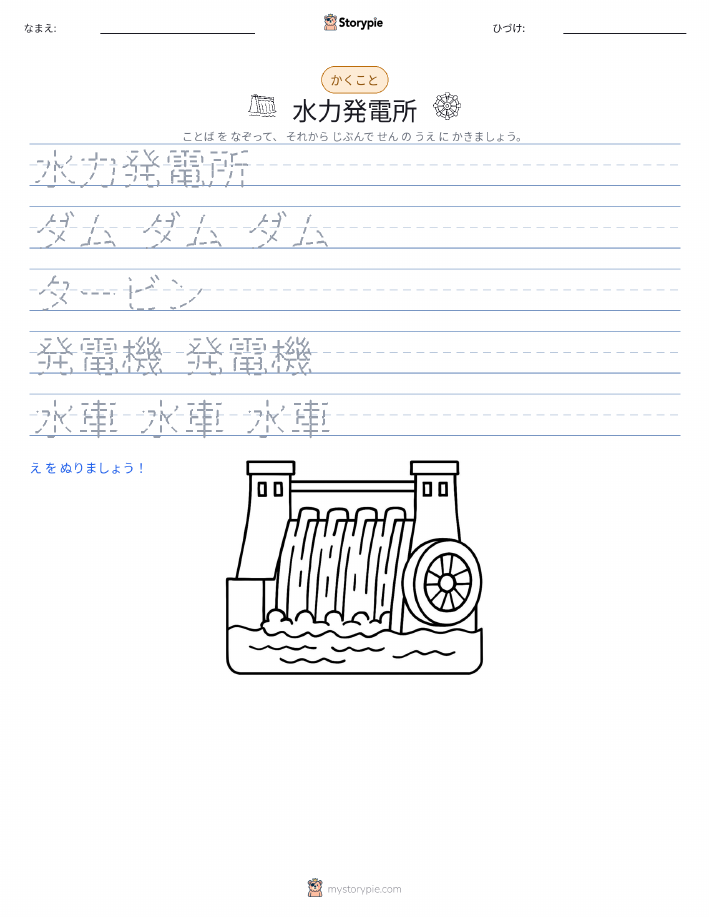 なまえ:
Storypie
ひづけ:
かくこと
水力発電所
ことば を なぞって、 それから じぶんで せん の うえ に かきましょう。
水力発電所
ダム ダム ダム
タービン
発電機 発電機
水車 水車 水車
え を ぬりましょう！
mystorypie.com